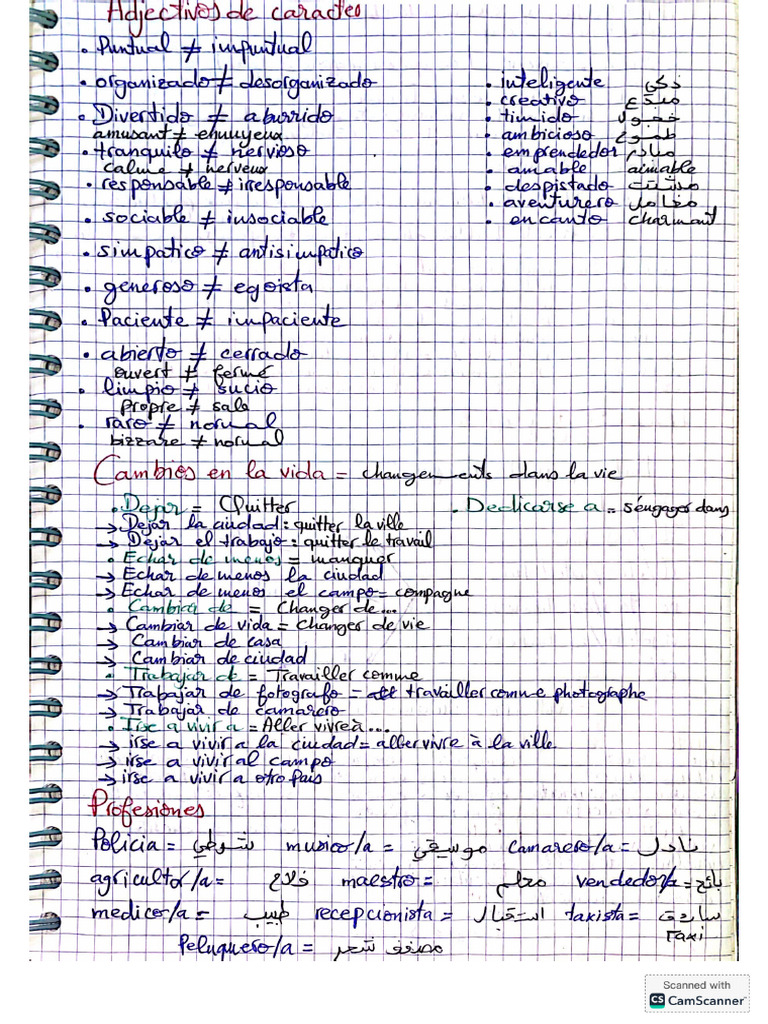 Adjectivos de caracteo
. Puntual ≠ impuntual
. organizado ≠ desorganizado
. Divertido ≠ aburrido
amusant ≠ ennuyeux
. tranquilo ≠ nervioso
calme ≠ nerveux
. responsable ≠ irresponsable
. sociable ≠ insociable
. simpatico ≠ antisimpatico
. generoso ≠ egoista
. Paciente ≠ impaciente
. abierto ≠ cerrado
ouvert ≠ fermé
. limpio ≠ sucio
propre ≠ sale
. raro ≠ normal
bizzare ≠ normal
. inteligente ذكي
. creativo مبدع
. timido خجول
. ambicioso طموح
. emprendedor مبادر
. amable aimable
. despistado مشتت
. aventurero مغامر
. encanto charmant
Cambios en la vida = changements dans la vie
. Dejar = Quitter
→ Dejar la ciudad : quitter la ville
→ Dejar el trabajo : quitter le travail
. Echar de menos = manquer
→ Echar de menos la ciudad
→ Echar de menos el campo = compagne
. Cambiar de = Changer de...
→ Cambiar de vida = Changer de vie
→ Cambiar de casa
→ Cambiar de ciudad
. Trabajar de = Travailler comme
→ Trabajar de fotografo = travailler comme photographe
→ Trabajar de camarero
. Irse a vivir a = Aller vivre à...
→ irse a vivir a la ciudad = aller vivre à la ville
→ irse a vivir al campo
→ irse a vivir a otro pais
. Dedicarse a = s'engager dans
Profesiones
Policia = شرطي musico/a = موسيقي camarero/a = نادل
agricultor/a = فلاح maestro = معلم vendedor/a = بائع
medico/a = طبيب recepcionista = استقبال taxista = سائق
Taxi
Peluquero/a = مصفف شعر
Scanned with
CS CamScanner